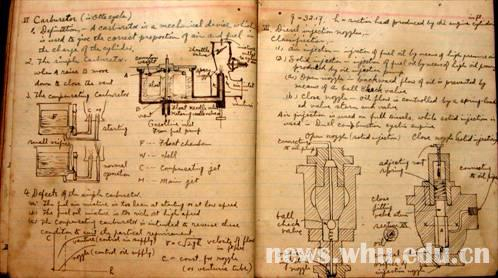 II Carburetor (in Otto cycle)
1. Definition - A carburetor is a mechanical device which
is used to give the correct proportion of air and fuel in
the charge of the cylinder.
2. The simple carburetor.
when A raise to move
down to close the
3. The compensating carburetor
starting
small orifice
normal
operation
throttle
valve
float
Float needle
Gasoline inlet
from fuel pump
F --- Float chamber
W --- Well
C --- Compensating jet
M --- Main jet
4. Defects of the simple carburetor.
(a) The fuel air mixture is too lean at starting or at low speed
(b) The fuel air mixture is too rich at high speed
(c) The compensating carburetor is intended to reverse these
condition to suit the practical requirement
venturi (control air supply)
nozzle (control oil supply)
V = C√2gh velocity of flow
C = const. for nozzle
(or venturi tube)
g = 32.17, h = suction head produced by air engine cylinder
III Diesel injection nozzles
(1) Air injection - injection of fuel oil by means of high pressure air
(2) Solid injection - injection of fuel oil by means of high oil pressure
(a) Open nozzle - backward flow of oil is prevented by
means of a ball check valve
(b) Close nozzle - oil flow is controlled by a spring loaded
valve
Air injection is used on full diesels, while solid injection is
used in Dual combustion cycle engine
Open nozzle (solid injection)
Close nozzle (solid injection)
connecting
to oil pump
adjusting rod
spring
connecting
to oil pump
close
ball
check
valve
nozzle
news.whu.edu.cn